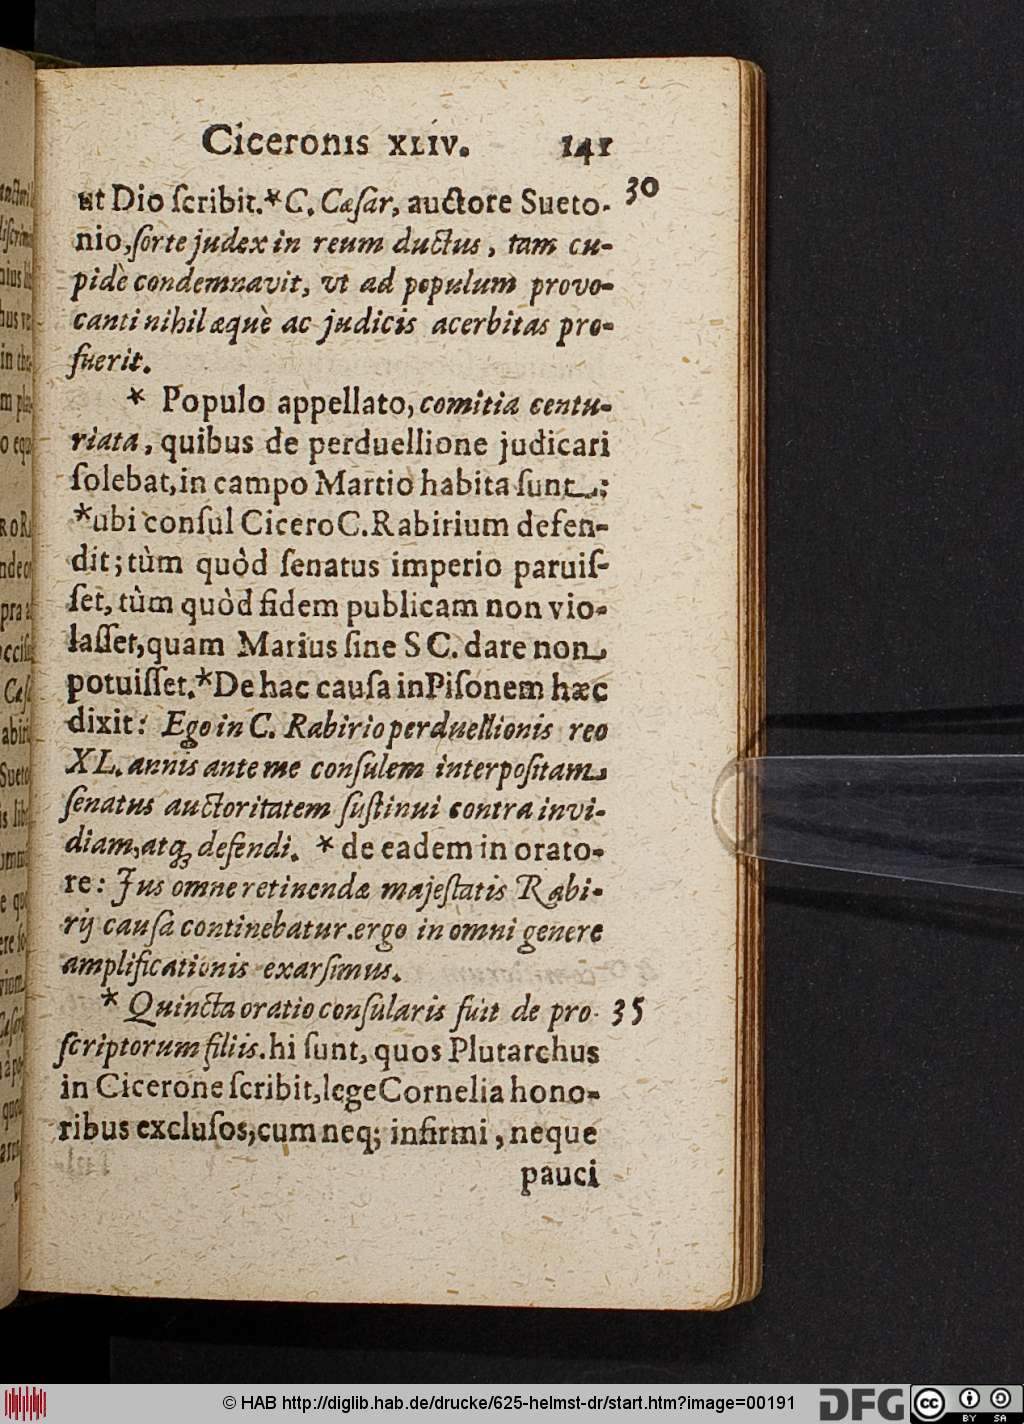 Ciceronis XLIV. 141
ut Dio ſcribit.*C. Cæſar, auctore Sueto- 30
nio, ſorte judex in reum ductus, tam cu-
pidè condemnavit, vt ad populum provo-
canti nihil æquè ac judicis acerbitas pro-
fuerit.
* Populo appellato, comitia centu-
riata, quibus de perduellione judicari
ſolebat, in campo Martio habita ſunt:
*ubi conſul Cicero C. Rabirium defen-
dit; tùm quòd ſenatus imperio paruiſ-
ſet, tùm quòd fidem publicam non vio-
laſſet, quam Marius ſine S C. dare non
potuiſſet.*De hac cauſa in Piſonem hæc
dixit: Ego in C. Rabirio perduellionis reo
XL. annis ante me conſulem interpoſitam
ſenatus auctoritatem ſuſtinui contra invi-
diam, atq; defendi. * de eadem in orato-
re: Jus omne retinendæ majeſtatis Rabi-
rij cauſa continebatur. ergo in omni genere
amplificationis exarſimus.
* Quincta oratio conſularis fuit de pro- 35
ſcriptorum filiis. hi ſunt, quos Plutarchus
in Cicerone ſcribit, lege Cornelia hono-
ribus excluſos, cum neq; infirmi, neque
pauci
© HAB http://diglib.hab.de/drucke/625-helmst-dr/start.htm?image=00191
DFG
cc BY SA